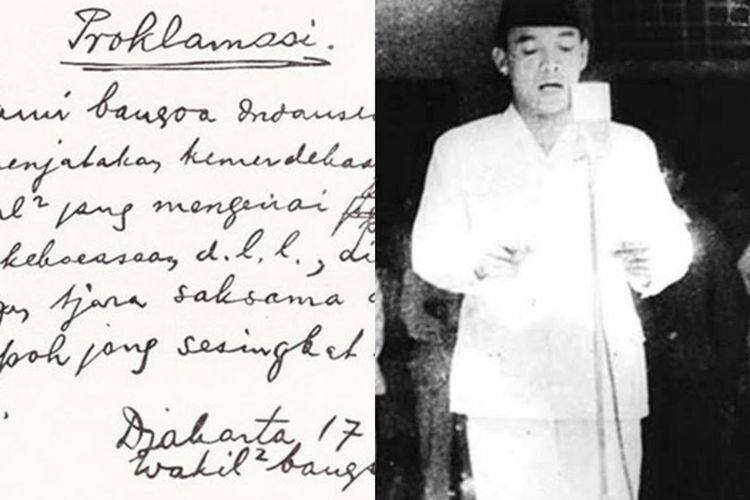 Proklamasi.
ami bangsa Indonesi
enjatakan kemerdekaa
al² jang mengenai
kekoeasaan d.l.l., di
gan tjara saksama
poh jang sesingkat
Djakarta 17
Wakil² bangs